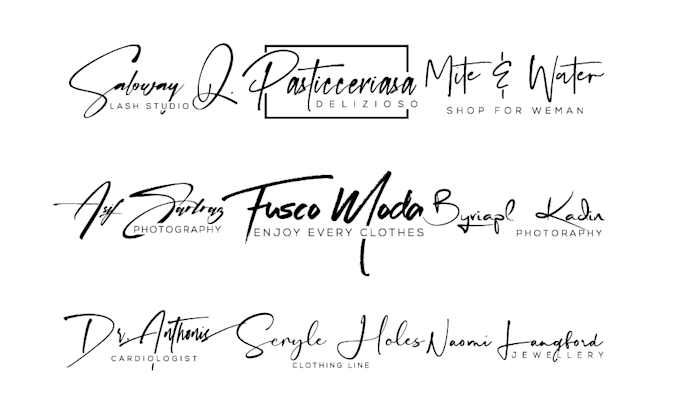 Saloway Q.
LASH STUDIO
Pasticceriasa
DELIZIOSO
Mite & Water
SHOP FOR WEMAN
Asf Sarfraz
PHOTOGRAPHY
Fusco Moda
ENJOY EVERY CLOTHES
Byriapl Kadin
PHOTORAPHY
Dr. Anthonis
CARDIOLOGIST
Scryle Holes
CLOTHING LINE
Naomi Langford
JEWELLERY